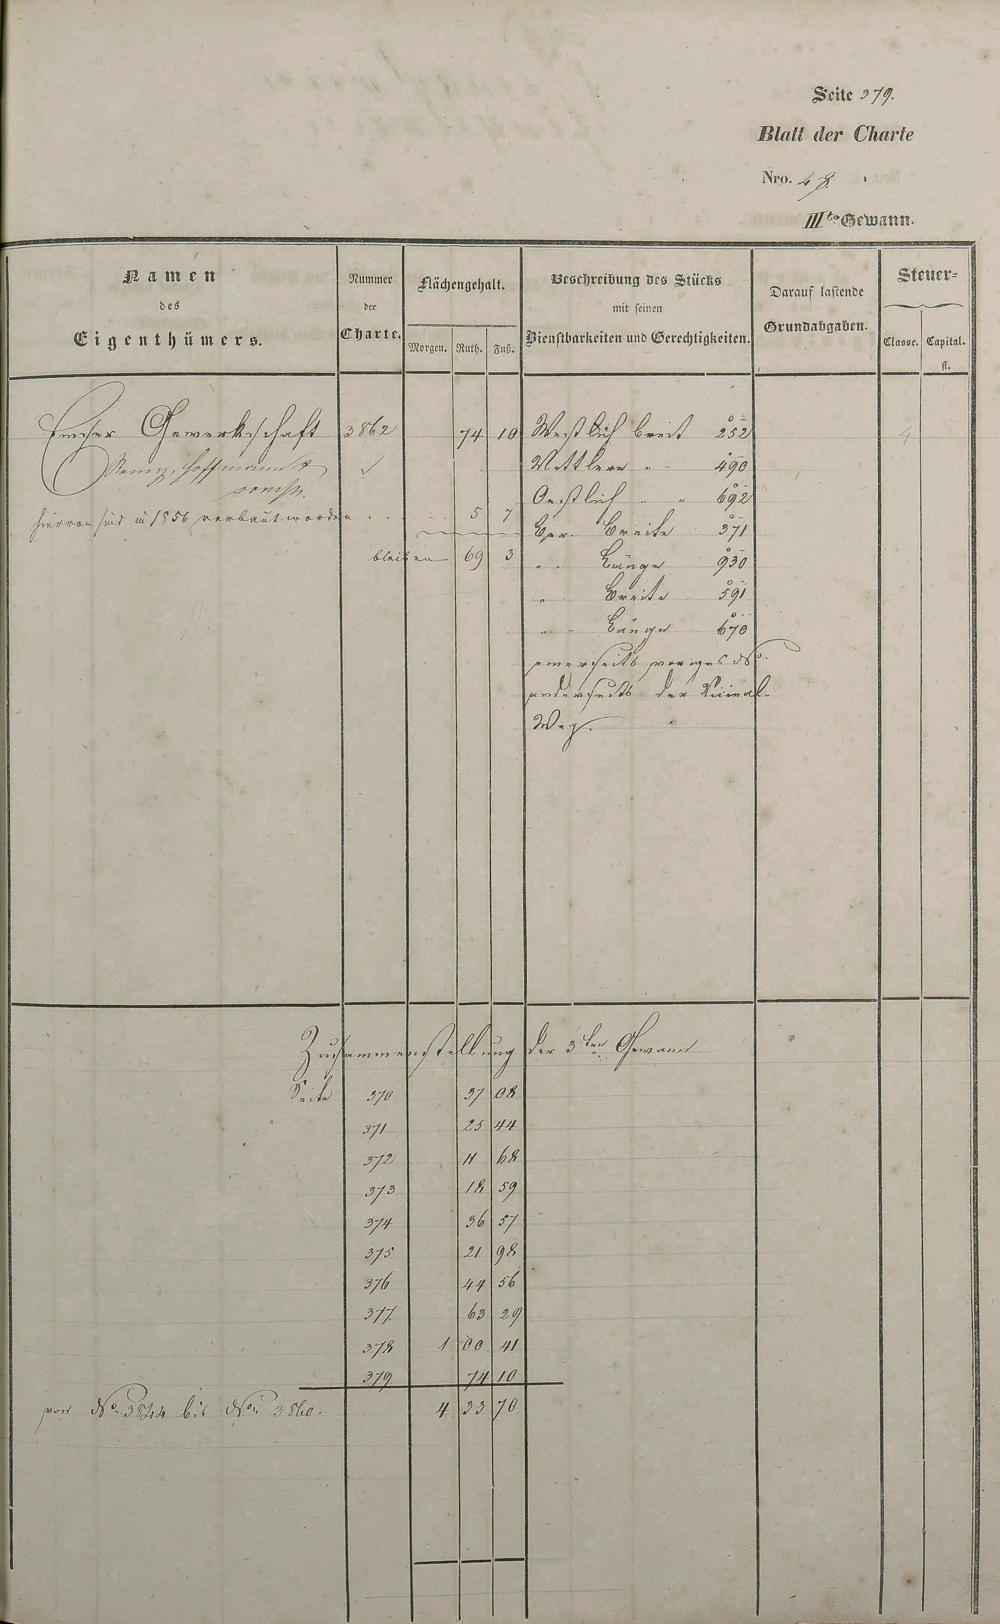 Seite 379.
Blatt der Charte
Nro. 48.
IIIte Gewann.
Namen
des
Eigenthümers.
Nummer
der
Charte.
Flächengehalt.
Morgen. Ruth. Fuß.
Beschreibung des Stücks
mit seinen
Dienstbarkeiten und Gerechtigkeiten.
Darauf lastende
Grundabgaben.
Steuer-
Classe. Capital.
fl.
Emser Gewerkschaft 3862 74 10 Westlich breit 252
Remy, Hoffmann & Mittlere " 490
consn. Oestlich " " 692
hiervon sind in 1856 verbaut worden 5 7 Ber. Breite 371
bleiben 69 3 " Länge 930
" Breite 591
" Länge 670
einerseits voriges No
anderseits der Vicinal-
Weg.
Zusammenstellung der 3ten Gewann
Seite 370 37 08
371 25 44
372 11 68
373 18 59
374 36 57
375 21 98
376 44 56
377. 63 29
378 1 00 41
379 74 10
von No. 3844 bis No. 3860. 4 33 70